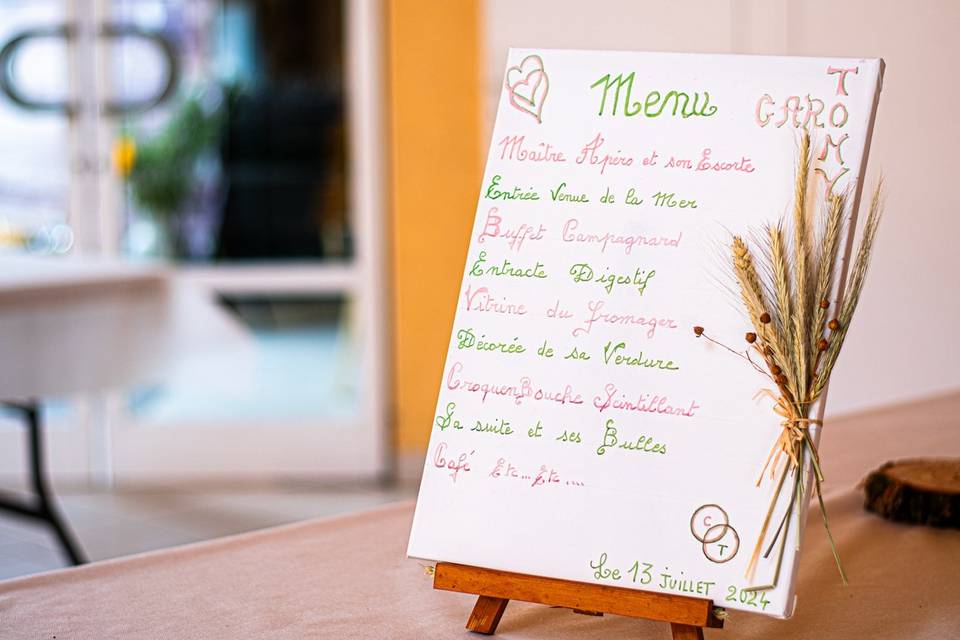 Menu
CARO
TOMY
Maître Apéro et son Escorte
Entrée Venue de la Mer
Buffet Campagnard
Entracte Digestif
Vitrine du fromager
Décorée de sa Verdure
CroquenBouche Scintillant
Sa suite et ses Bulles
Café Etc...Etc....
C
T
Le 13 juillet 2024